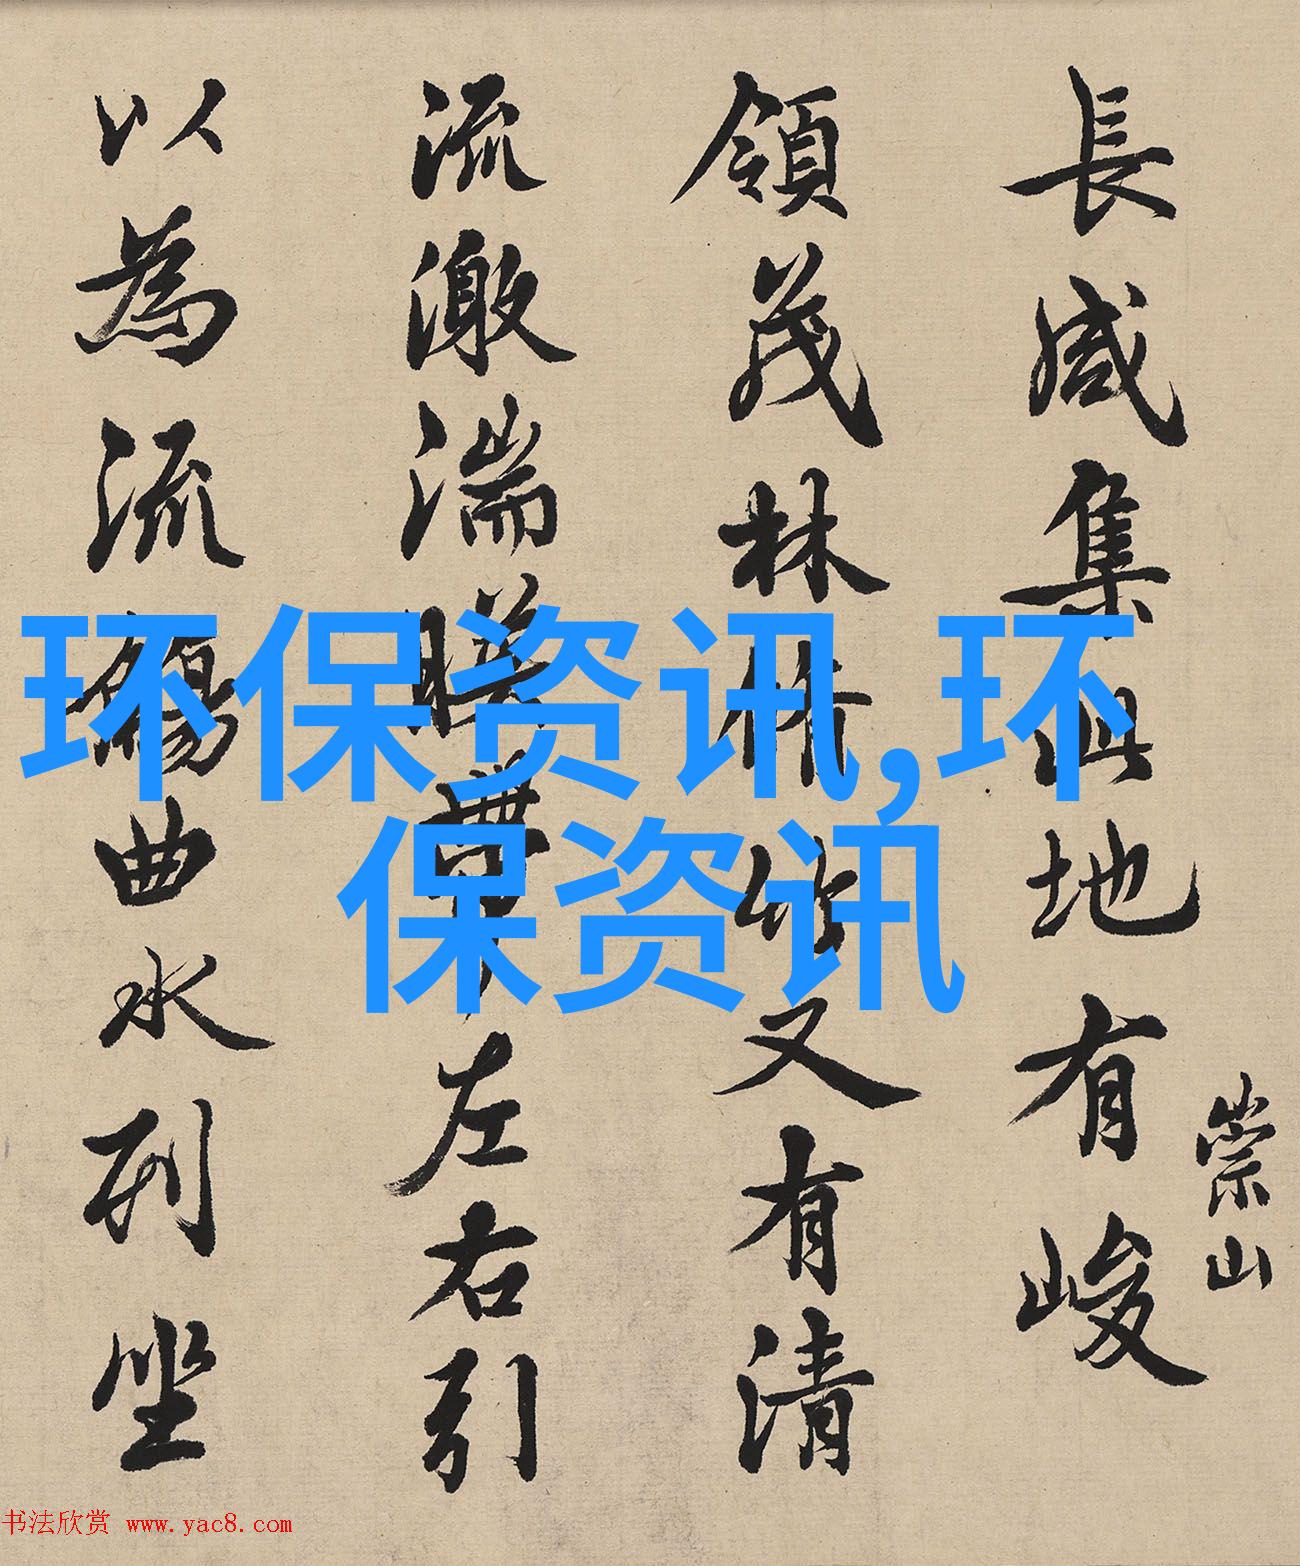 長咸集此地有峻
崇山
領茂林脩竹又有清
流激湍暎帶左右引
以為流觴曲水列坐
环保资讯,环
保资讯
书法欣赏 www.yac8.com